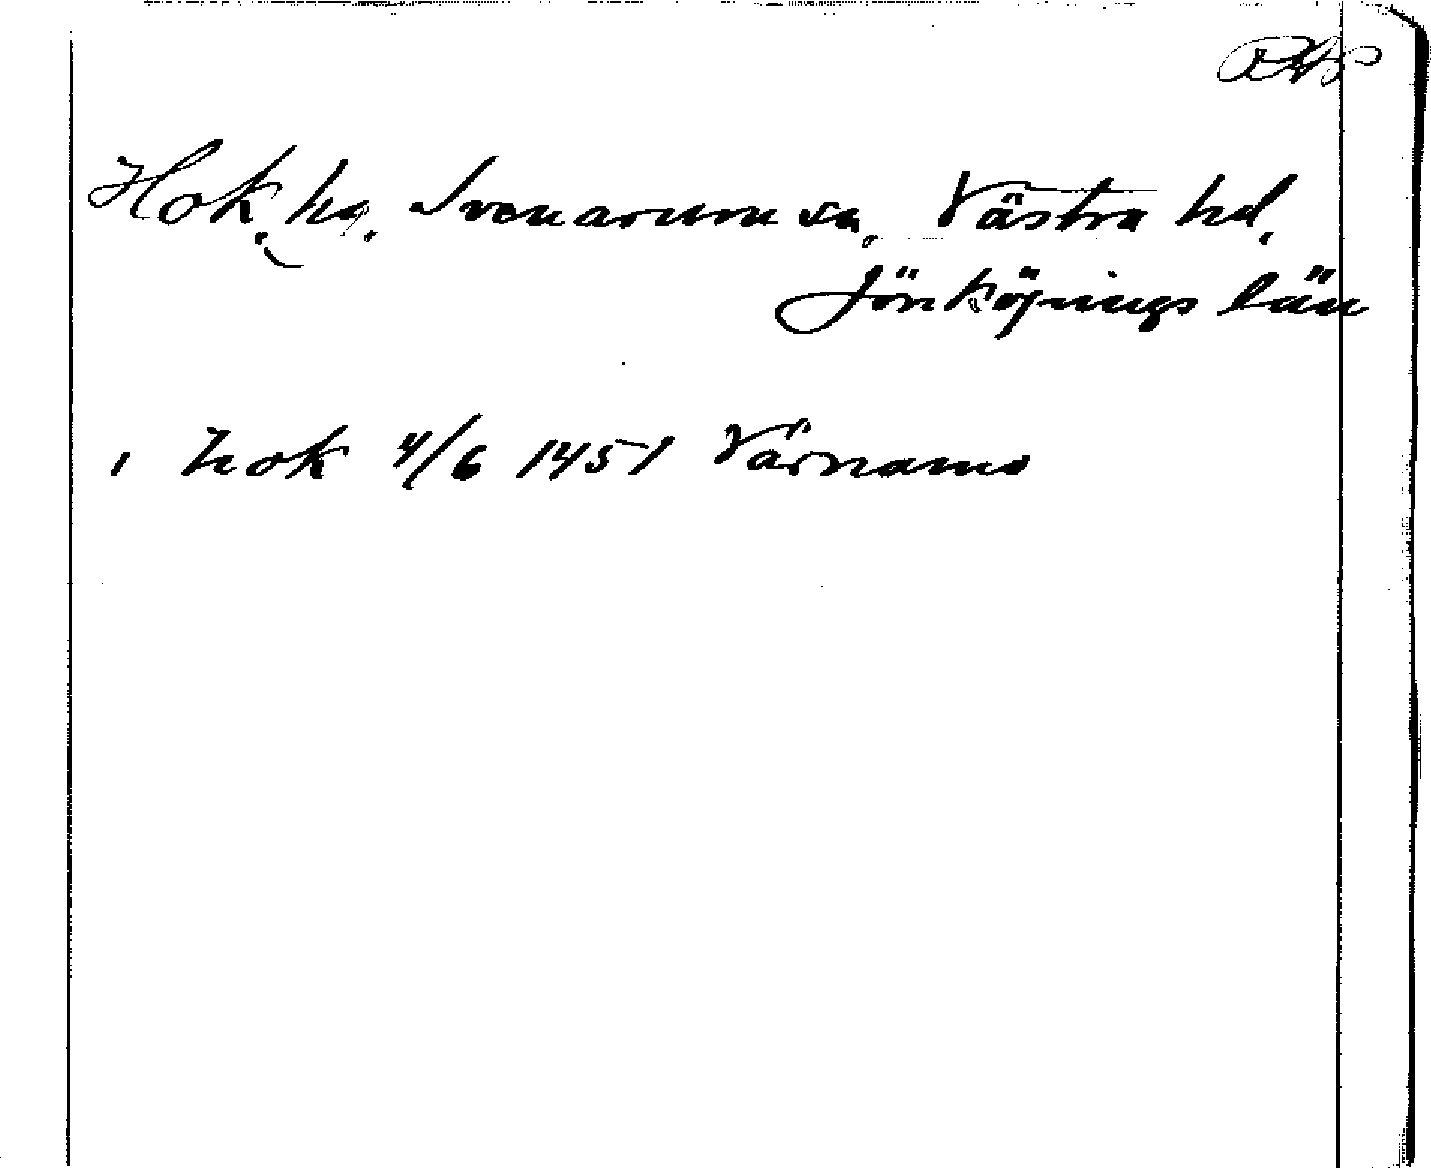 Hok, hg, Svenarum sn, Västra hd,
Jönköpings län
i hok 4/6 1451 Värnamo